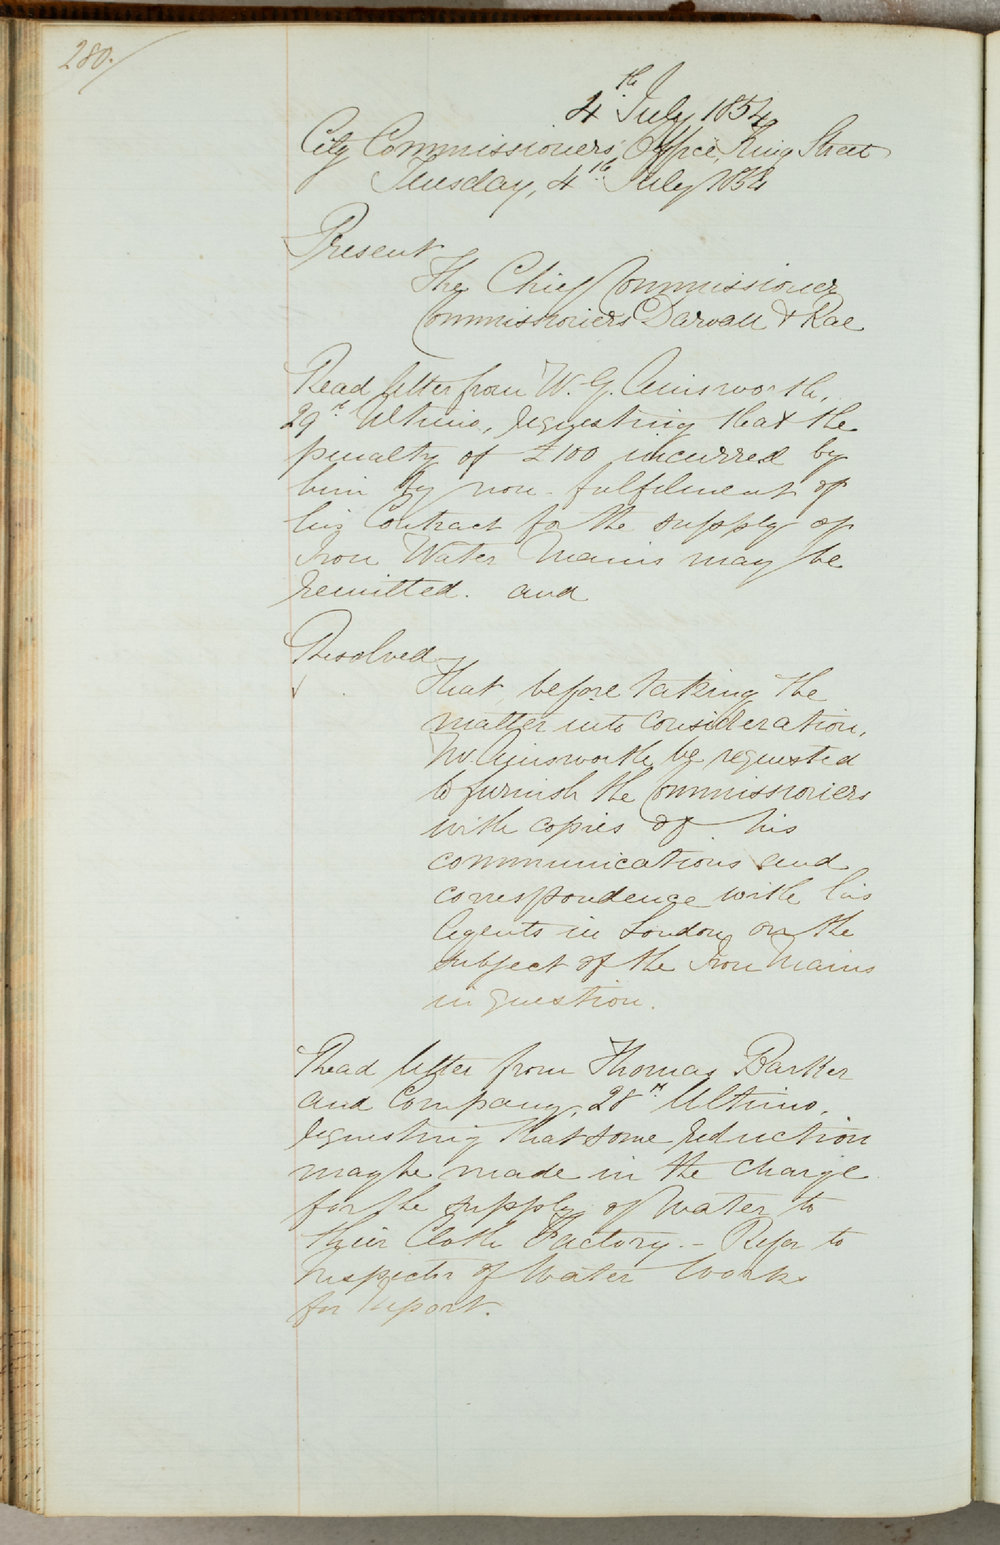 280.
4th July 1854
City Commissioners' Office, King Street
Tuesday, 4th July 1854
Present
The Chief Commissioner
Commissioners Darvall & Rae
Read letter from W. G. Ainsworth,
29th Ultimo, requesting that the
penalty of £100 incurred by
him by non-fulfilment of
his Contract for the supply of
Iron Water Mains may be
remitted. and
Resolved
That before taking the
matter into consideration,
Mr. Ainsworth be requested
to furnish the Commissioners
with copies of his
communications and
correspondence with his
Agents in London on the
subject of the Iron Mains
in question.
Read letter from Thomas Barker
and Company, 28th Ultimo,
requesting that some reduction
may be made in the charge
for the supply of Water to
their Cloth Factory. - Refer to
Inspector of Water Works
for Report.